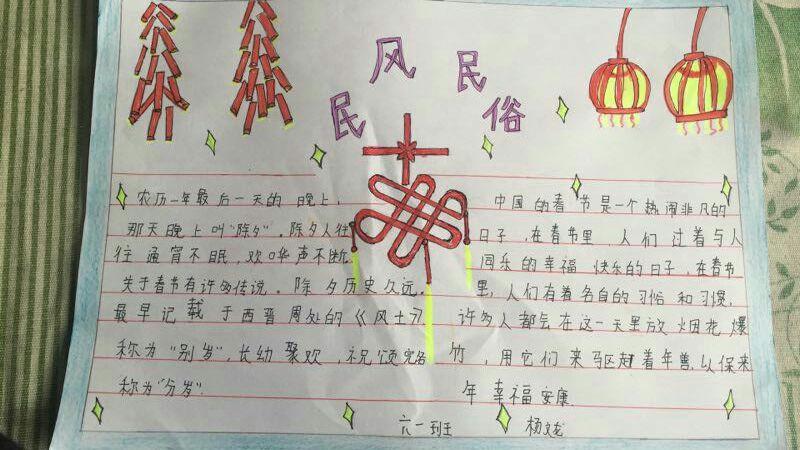 民风民俗
农历一年最后一天的晚上,
那天晚上叫"除夕".除夕人往
往通宵不眠,欢哗声不断.
关于春节有许多传说.除夕历史久远,
最早记载于西晋周处的《风土记
称为"别岁",长幼聚欢,祝颂完备
称为"分岁".
中国的春节是一个热闹非凡的
日子,在春节里 人们过着与人
同乐的幸福 快乐的日子,在春节
里,人们有着各自的习俗和习惯,
许多人都会在这一天里放烟花爆
竹,用它们来驱赶着年兽.以保来
年幸福安康.
六一班 杨文龙